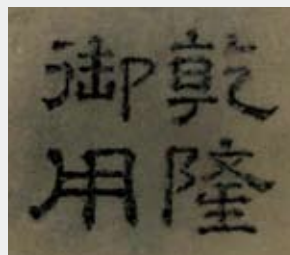 乾隆
御用